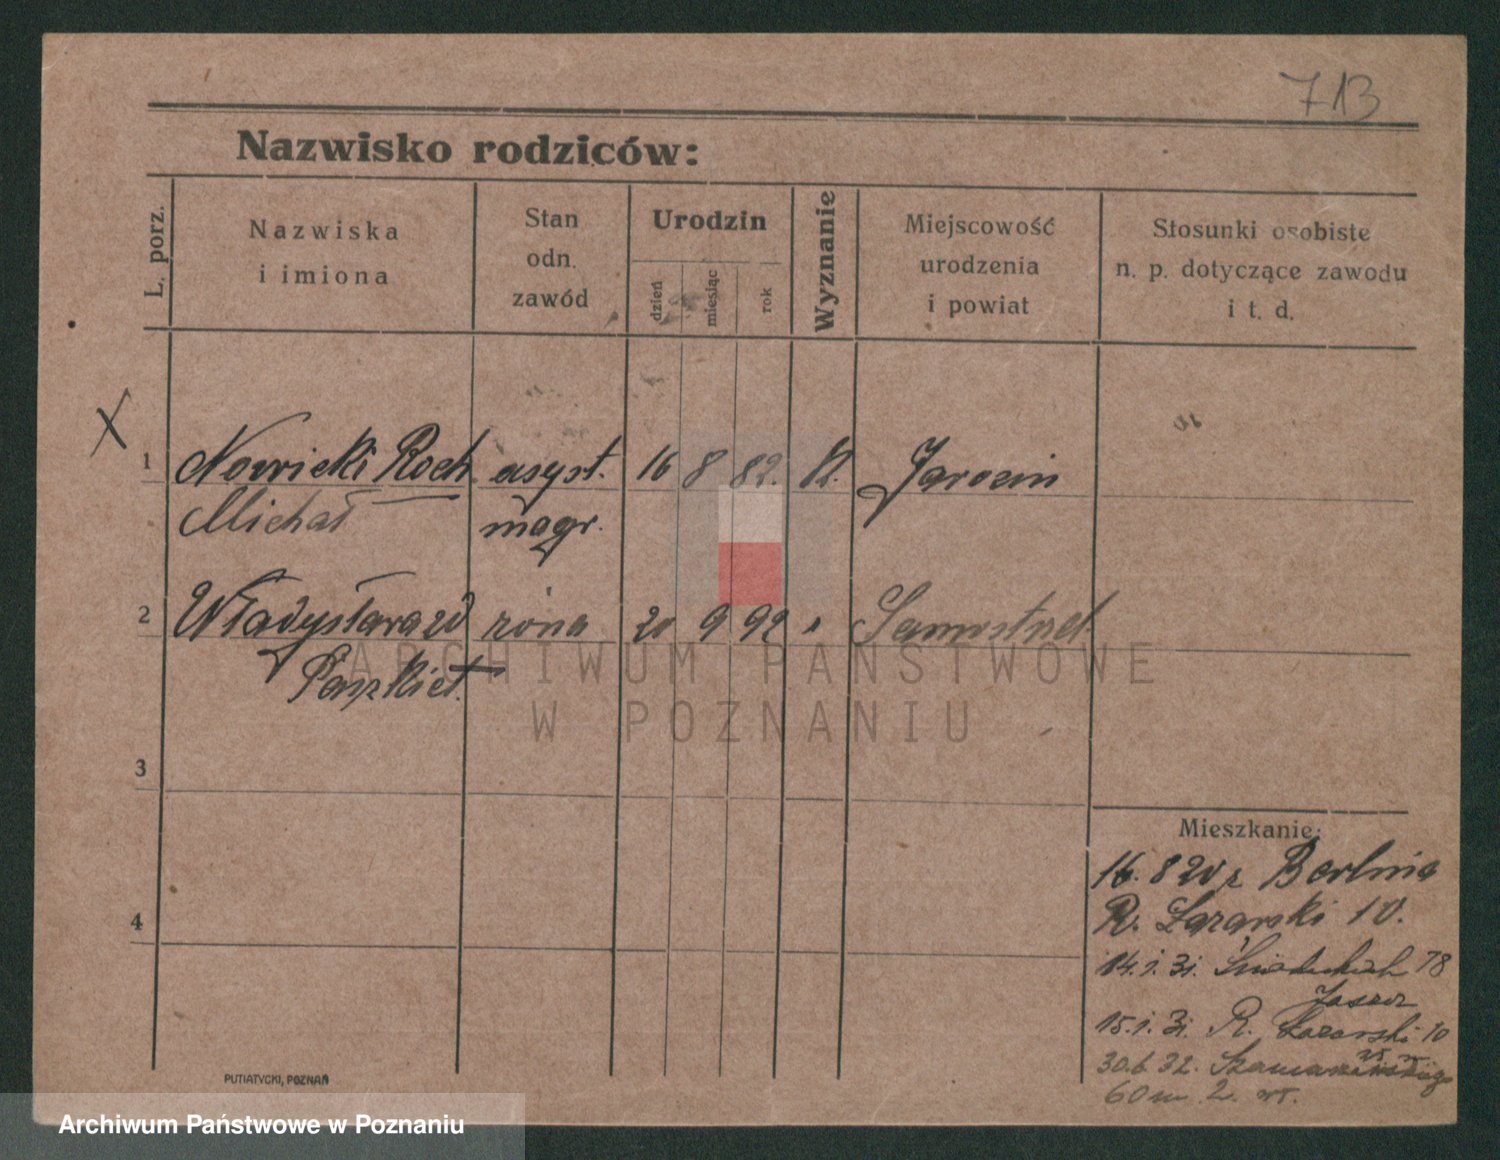 713
Nazwisko rodziców:
L. porz.
Nazwiska
i imiona
Stan
odn.
zawód
Urodzin
dzień
miesiąc
rok
Wyznanie
Miejscowość
urodzenia
i powiat
Stosunki osobiste
n. p. dotyczące zawodu
i t. d.
X
1 Nowicki Roch asyst. 16 8 82. Jarocin
Michał magr.
2 Władysława zd żona 20 9 92 " Samostrzel
Paszkiet.
3
4
ARCHIWUM PAŃSTWOWE
W POZNANIU
Mieszkanie:
16. 8 20 z Berlina
R. Łazarski 10.
14.1.31. Śniadeckich 78
15.1.31. R. Łazarski 10
30.6.32.
60 m. 2.
PUTIATYCKI, POZNAŃ
Archiwum Państwowe w Poznaniu